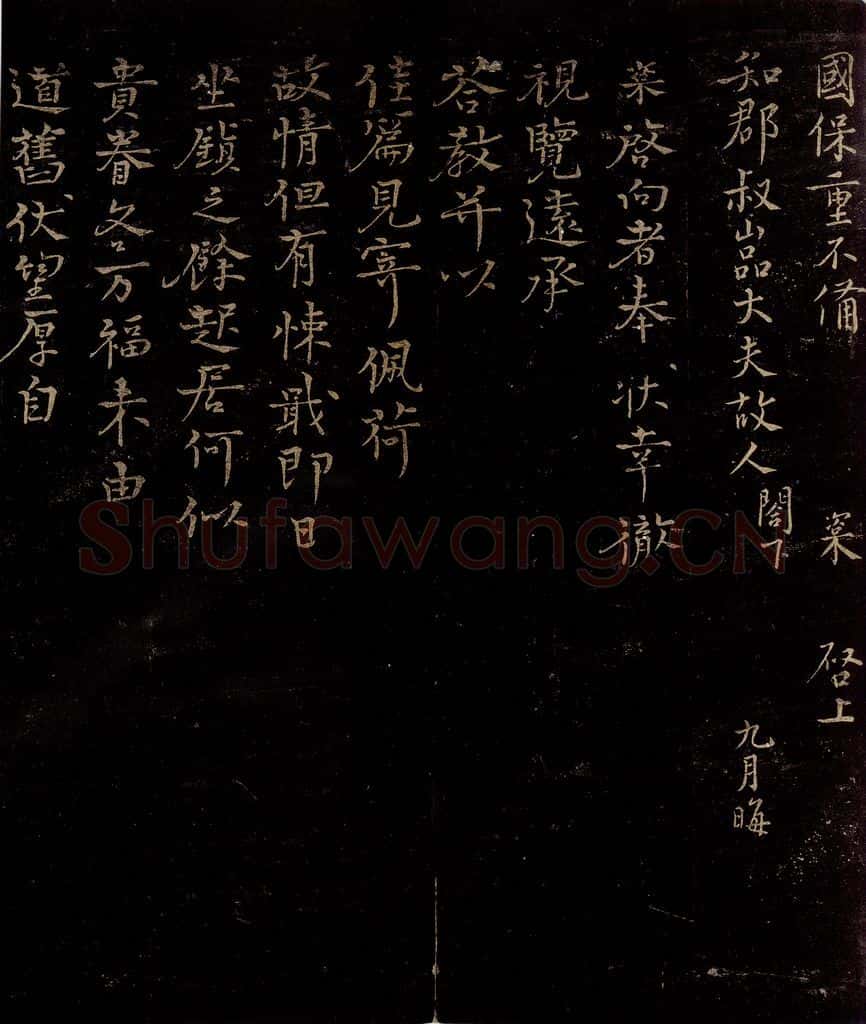 國保重不備 寀 啓上
知郡叔嵒大夫故人閤下 九月晦
寀啓向者奉狀幸徹
視覽遠承
荅教并以
佳篇見寄佩荷
故情但有悚戢即日
坐鎮之餘起居何似
貴眷各萬福未由
道舊伏望厚自
Shufawang.CN